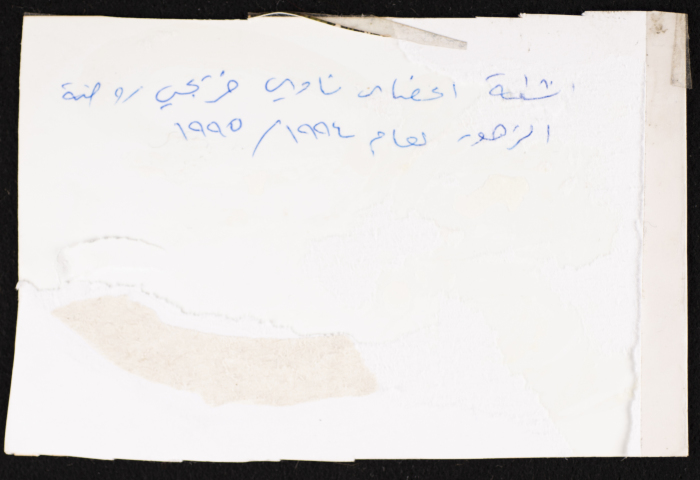 انشطة اعضاء نادي خريجي روضة
الزهور لعام ١٩٩٤/١٩٩٥